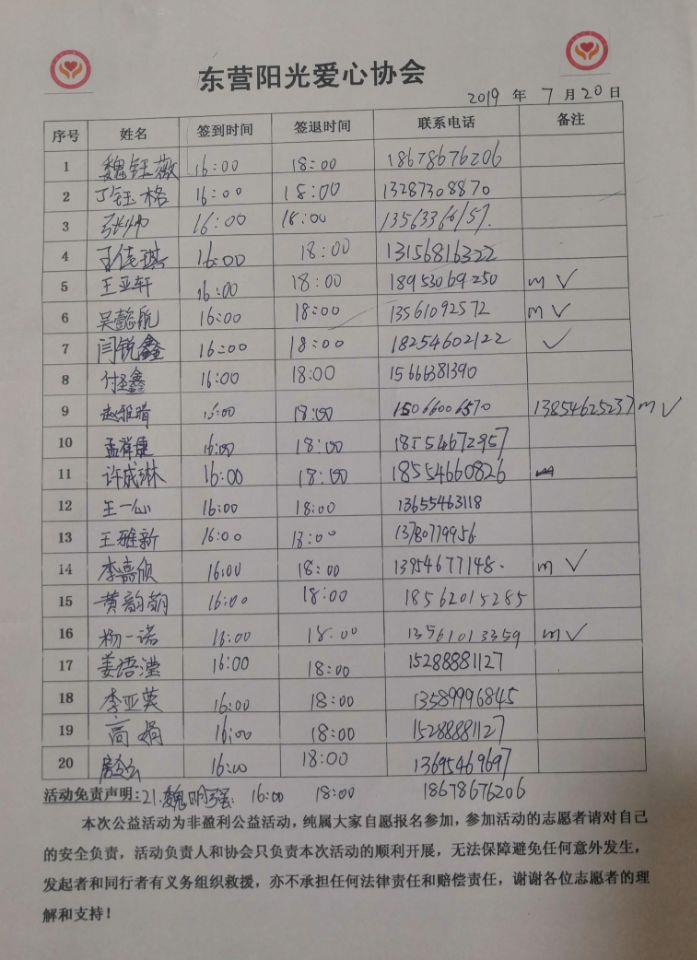 东营阳光爱心协会
2019 年 7 月 20 日
序号 姓名 签到时间 签退时间 联系电话 备注
1 魏钰薇 16:00 18:00 18678676206
2 丁钰格 16:00 18:00 13287308870
3 张帅 16:00 18:00
4 王倩琪 16:00 18:00 13156816322
5 王亚轩 16:00 18:00 18953069250 m √
6 吴懿航 16:00 18:00 13561092572 m √
7 闫锐鑫 16:00 18:00 18254602122 √
8 付圣鑫 16:00 18:00 15666381390
9 赵雅晴 16:00 18:00 15066006570 13854625237 m √
10 孟祥康 16:00 18:00 18554672957
11 许成琳 16:00 18:00 18554660826
12 王一心 16:00 18:00 13655463118
13 王雅新 16:00 18:00 13780779956
14 李嘉欣 16:00 18:00 13954677148. m √
15 黄韵朝 16:00 18:00 18562015285
16 杨一诺 16:00 18:00 13561013359 m √
17 姜语滢 16:00 18:00 15288881127
18 李亚英 16:00 18:00 13589996845
19 高娟 16:00 18:00 15288881127
20 16:00 18:00 13695469697
活动免责声明：21.魏明强: 16:00 18:00 18678676206
本次公益活动为非盈利公益活动，纯属大家自愿报名参加，参加活动的志愿者请对自己
的安全负责，活动负责人和协会只负责本次活动的顺利开展，无法保障避免任何意外发生，
发起者和同行者有义务组织救援，亦不承担任何法律责任和赔偿责任，谢谢各位志愿者的理
解和支持！